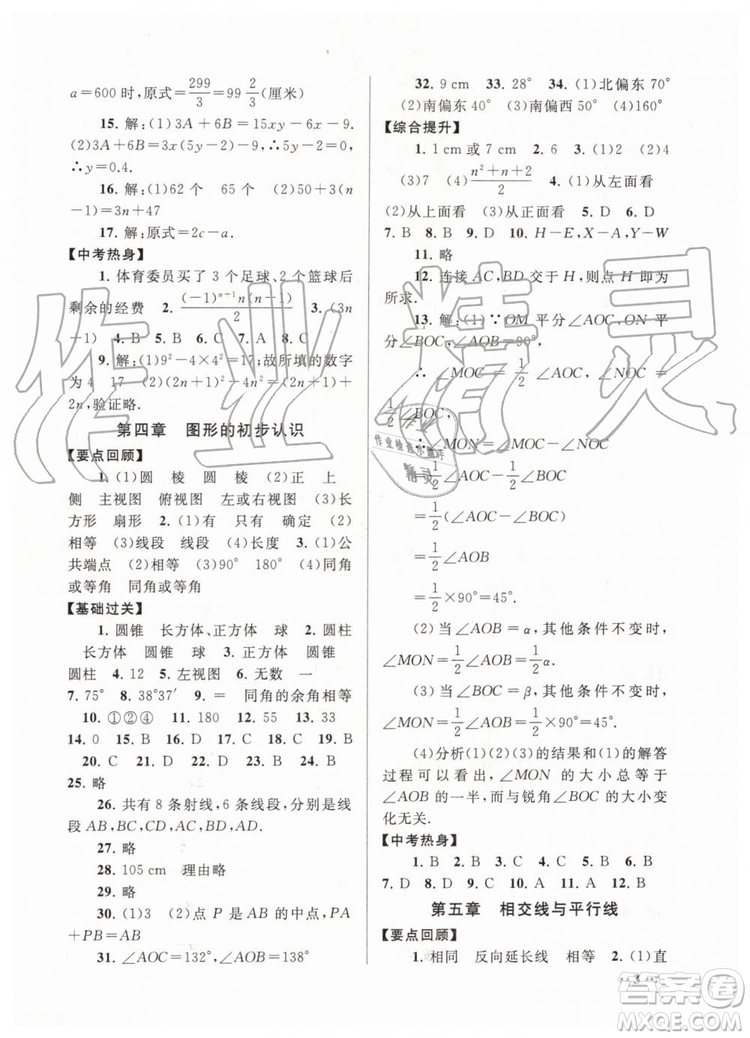 a=600 时,原式=299/3=99 2/3(厘米)
15. 解:(1)3A+6B=15xy-6x-9.
(2)3A+6B=(15y-6)x-9,由题意知
y=0.4.
16. 解:(1)62 个　65 个　(2)50+3(n
-1)=3n+47
17. 解:原式=2c-a.
【中考热身】
1. 体育委员买了 3 个足球、2 个篮球后
剩余的经费　2. (-1)ⁿ⁺¹(n+1)/2　3. (3n
+1)　4. B　5. B　6. A　7. A　8. C
9. 解:(1)9²-4×4²=17;故所填的数字
为 4　17　(2)(2n+1)²-4n²=2(2n+1)+
2n,验证略.
第四章　图形的初步认识
【要点回顾】
1. (1)圆　棱　圆　棱　(2)正　上
侧　主视图　俯视图　左或右视图　(3)长
方形　扇形　2. (1)有　只有　确定　(2)
相等　(3)线段　线段　(4)长度　3. (1)公
共端点　(2)相等　(3)90°　180°　(4)同角
或等角　同角或等角
【基础过关】
1. 圆锥　长方体、正方体　球　2. 圆柱
长方体　圆锥　球　3. 正方体　圆锥
圆柱　4. 12　5. 左视图　6. 无数　一
7. 75°　8. 38°37′　9. =　同角的余角相等
10. ①②④　11. 180　12. 55　13. 33
14. 0　15. B　16. B　17. D　18. C　19. B
20. C　21. D　22. D　23. B　24. B
25. 略
26. 共有 8 条射线,6 条线段,分别是线
段 AB,BC,CA,AD,BD,CD.
27. 略
28. 105 cm　理由略
29. 略
30. (1)略　(2)点 P 是 AB 的中点,PA
+PB=AB
31. ∠AOC=132°,∠AOB=138°
32. 9 cm　33. 28°　34. (1)北偏东 70°
(2)南偏东 40°　(3)南偏西 50°　(4)160°
【综合提升】
1. 1 cm 或 7 cm　2. 6　3. (1)2　(2)4
(3)7　(4)(n²+n+2)/2　4. (1)从左面看
(2)从上面看　(3)从正面看　5. D　6. D
7. B　8. A　9. D　10. H-E,X-A,Y-W
11. 略
12. 连接 AC,BD 交于 H,则点 H 即为
所求.
13. 解:(1)∵OM 平分∠AOC,ON 平
分∠BOC,∠AOB=90°,
∴ ∠MOC=1/2∠AOC,∠NOC=
1/2∠BOC.
∴ ∠MON=∠MOC-∠NOC
=1/2∠AOC-1/2∠BOC
=1/2(∠AOC-∠BOC)
=1/2∠AOB
=1/2×90°=45°.
(2) 当∠AOB=α,其他条件不变时,
∠MON=1/2∠AOB=1/2α.
(3) 当∠BOC=β,其他条件不变时,
∠MON=1/2∠AOB=1/2×90°=45°.
(4)分析(1)的结果和(1)的解答
过程可以看出:∠MON 的大小总等于
∠AOB 的一半,而与锐角∠BOC 的大小变
化无关.
【中考热身】
1. B　2. B　3. B　4. C　5. C　6. B
7. D　8. D　9. C　10. A　11. B　12. B
第五章　相交线与平行线
【要点回顾】
1. 相同　反向延长线　相等　2. (1)直
3
作业精灵
作业检查小帮手
精灵
答案圈